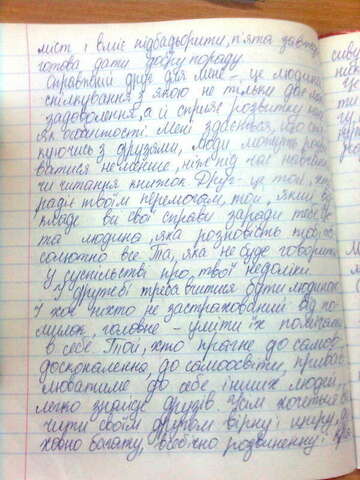 міст і вміє підбадьорити, п'ята завжди
готова дати добру пораду.
Справжній друг для мене – це людина,
спілкування з якою не тільки дає
задоволення, а й сприяє розвитку
як особистості. Мені здається, що
куючись з друзями, люди можуть
ватися не менше, ніж під час навчання
чи читання книжок. Друг – це той, хто
радіє твоїм перемогам, той, який
кладе всі свої справи заради тебе,
та людина, яка розповість тобі
солютно все. Та, яка не буде говорити
у суспільстві про твої недоліки.
У дружбі треба вчитися бути людиною.
І хоч ніхто не застрахований від по-
милок, головне – уміти їх помічати
в себе. Той, хто прагне до самов-
досконалення, до самоосвіти,
люватиме до себе інших людей,
легко знайде друзів. Нам хочеться
чити своїм другом вірну і щиру,
ховно багату, всебічно розвиненну і